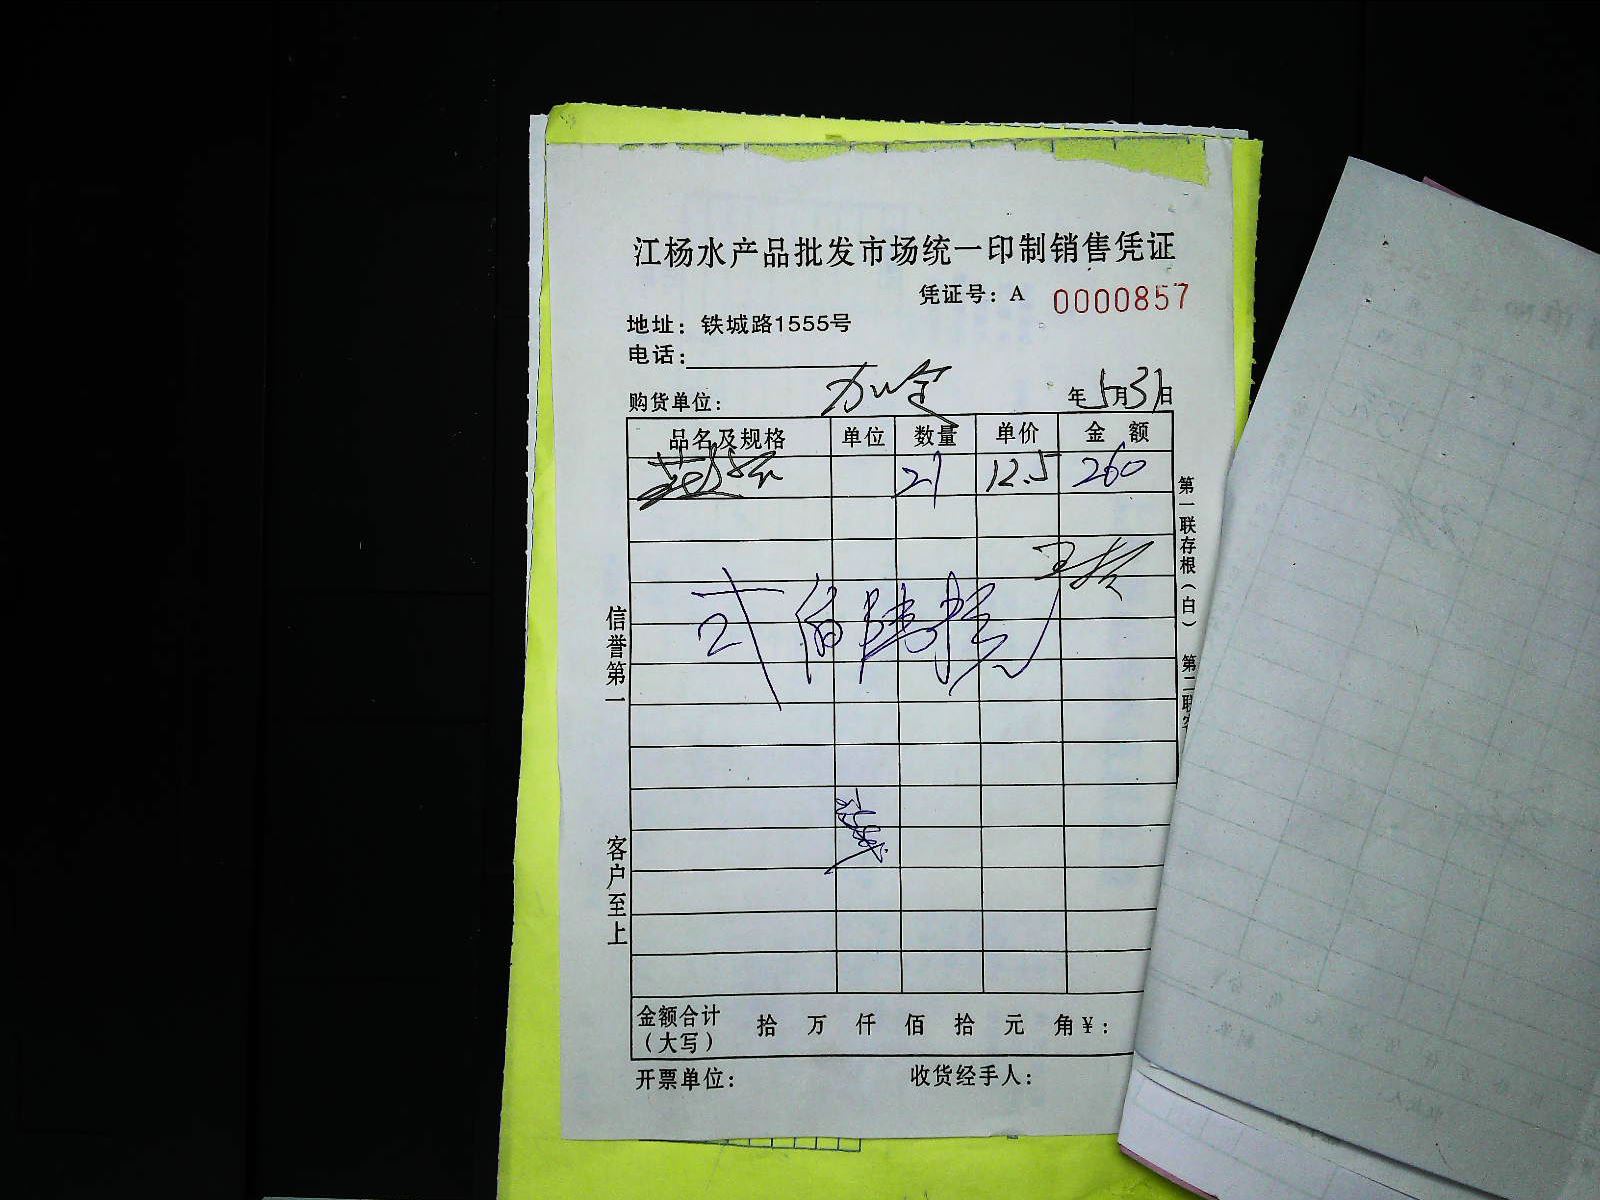 江杨水产品批发市场统一印制销售凭证
凭证号：A 0000857
地址：铁城路1555号
电话：
购货单位： 年5月31日
品名及规格 单位 数量 单价 金 额
21 12.5 260
弍佰陆拾元
第一联存根（白） 第二联客
信誉第一
客户至上
金额合计（大写） 拾 万 仟 佰 拾 元 角 ¥：
开票单位： 收货经手人：